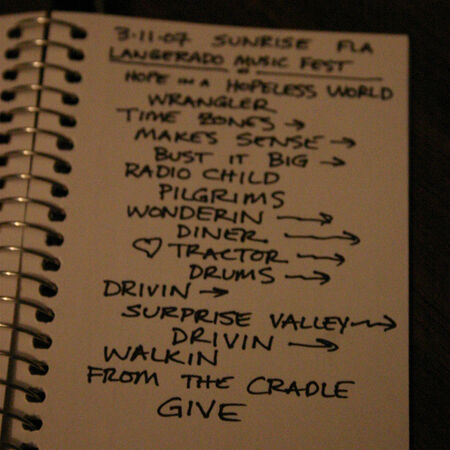 3-11-07 SUNRISE FLA
LANGERADO MUSIC FEST
HOPE IN A HOPELESS WORLD
WRANGLER
TIME ZONES →
MAKES SENSE →
BUST IT BIG →
RADIO CHILD
PILGRIMS
WONDERIN →
DINER →
♡ TRACTOR →
DRUMS →
DRIVIN →
SURPRISE VALLEY →
DRIVIN →
WALKIN
FROM THE CRADLE
GIVE